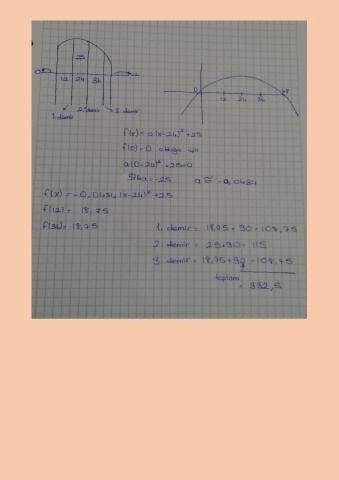 25
12 24 36
1. demir 2. demir 3. demir
0 12 24 36 48
f(x) = a(x-24)² + 25
f(0) = 0 olduğu için
a(0-24)² + 25 = 0
576a = -25 a ≅ -0,0434
f(x) = -0,0434 (x-24)² + 25
f(12) = 18,75
f(36) = 18,75
1. demir = 18,75 + 90 = 108,75
2. demir = 25 + 90 = 115
3. demir = 18,75 + 90 = 108,75
toplam
= 332,5